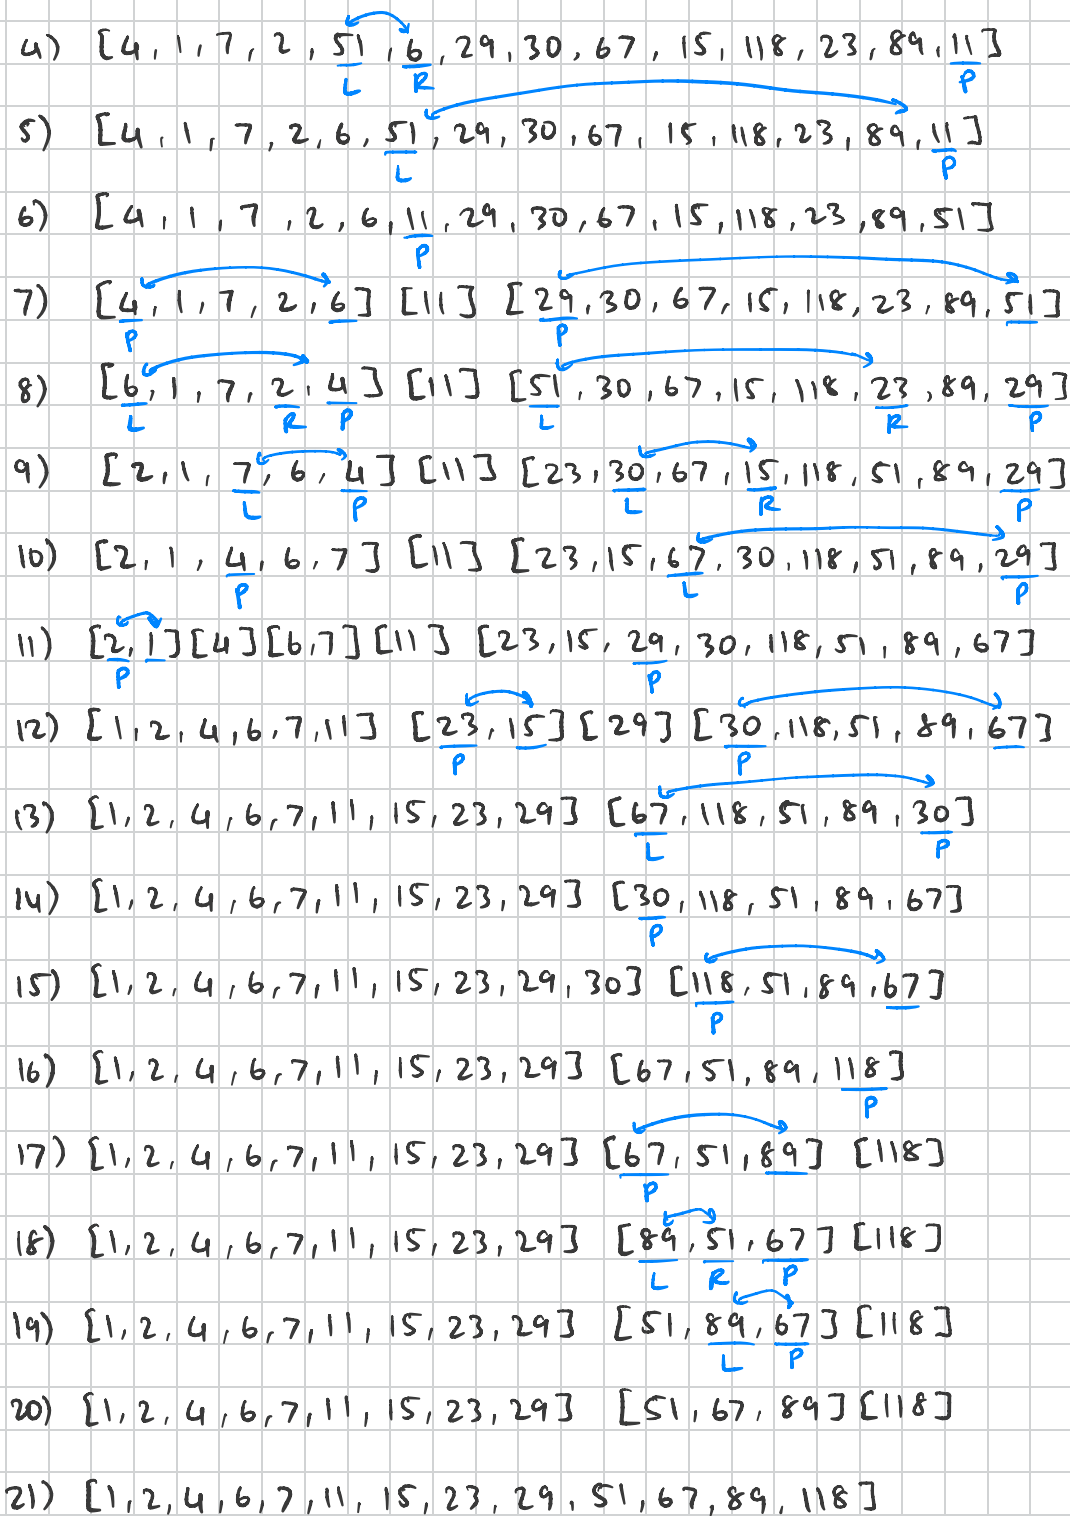 4) [4, 1, 7, 2, 51, 6, 29, 30, 67, 15, 118, 23, 89, 11]
L R P
5) [4, 1, 7, 2, 6, 51, 29, 30, 67, 15, 118, 23, 89, 11]
L P
6) [4, 1, 7, 2, 6, 11, 29, 30, 67, 15, 118, 23, 89, 51]
P
7) [4, 1, 7, 2, 6] [11] [29, 30, 67, 15, 118, 23, 89, 51]
P P
8) [6, 1, 7, 2, 4] [11] [51, 30, 67, 15, 118, 23, 89, 29]
L R P L R P
9) [2, 1, 7, 6, 4] [11] [23, 30, 67, 15, 118, 51, 89, 29]
L P L R P
10) [2, 1, 4, 6, 7] [11] [23, 15, 67, 30, 118, 51, 89, 29]
P L P
11) [2, 1] [4] [6, 7] [11] [23, 15, 29, 30, 118, 51, 89, 67]
P P
12) [1, 2, 4, 6, 7, 11] [23, 15] [29] [30, 118, 51, 89, 67]
P P
13) [1, 2, 4, 6, 7, 11, 15, 23, 29] [67, 118, 51, 89, 30]
L P
14) [1, 2, 4, 6, 7, 11, 15, 23, 29] [30, 118, 51, 89, 67]
P
15) [1, 2, 4, 6, 7, 11, 15, 23, 29, 30] [118, 51, 89, 67]
P
16) [1, 2, 4, 6, 7, 11, 15, 23, 29] [67, 51, 89, 118]
P
17) [1, 2, 4, 6, 7, 11, 15, 23, 29] [67, 51, 89] [118]
P
18) [1, 2, 4, 6, 7, 11, 15, 23, 29] [89, 51, 67] [118]
L R P
19) [1, 2, 4, 6, 7, 11, 15, 23, 29] [51, 89, 67] [118]
L P
20) [1, 2, 4, 6, 7, 11, 15, 23, 29] [51, 67, 89] [118]
21) [1, 2, 4, 6, 7, 11, 15, 23, 29, 51, 67, 89, 118]